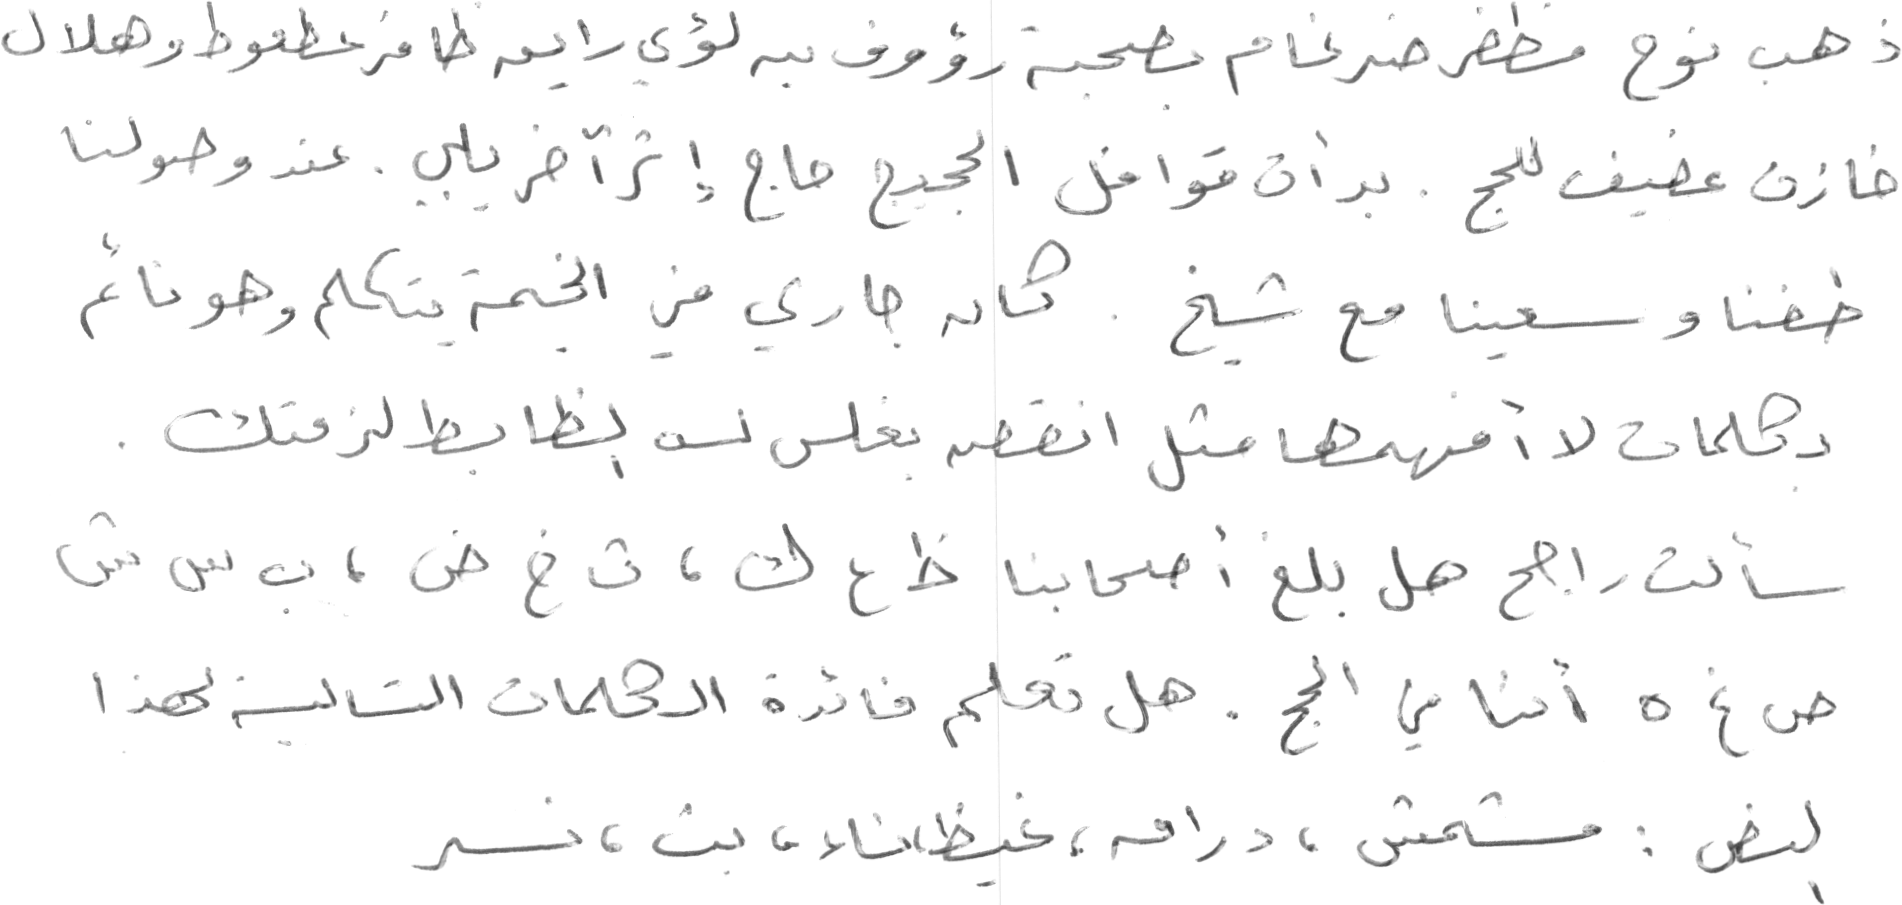 ذهب نوح مظفر ضرغام بصحبة رؤوف بن لؤي رايق ظافر عطعوط وهلال
خازن عفيف للحج . بدأت قوافل الحجيج حاج إثر آخر يلبي . عند وصولنا
طفنا وسعينا مع شيخ . كان جاري في الخيمة يتكلم وهو نائم
بكلمات لا أفهمها مثل انقض بغلس لسه إبظابط لزمتك .
سألت راجح هل بلغ أصحابنا ظ ع ك ، ث غ ض ، ب س ش
ص غ ه أمنا في الحج . هل تعلم فائدة الكلمات التالية لهذا
النص : مشمش ، دراق ، غيظ ، ماء ، بث ، نسر